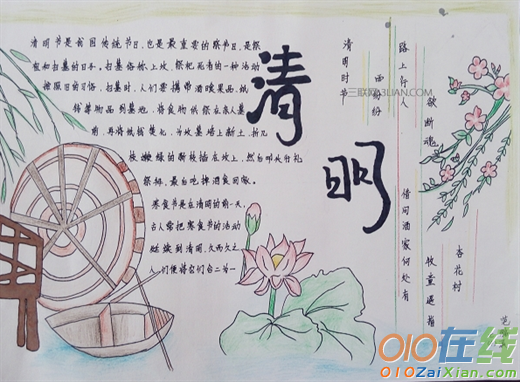 清明节是我国传统节日,也是最重要的祭节日,是祭
祖和扫墓的日子。扫墓俗称上坟,祭祀死者的一种活动
按照旧的习俗,扫墓时,人们要携带酒食果品,纸
钱等物品到墓地,将食物供祭在亲人墓
前,再将纸钱焚化,为坟墓培上新土,折几
枝嫩绿的新枝插在坟上,然后叩头行礼
祭拜,最后吃掉酒食回家。
寒食节是在清明的前一天,
古人常把寒食节的活动
延续到清明,久而久之
人们便将它们合二为一
清明
清明时节
雨纷纷
路上行人
欲断魂
借问酒家何处有
牧童遥指
杏花村
三联网 3LIAN.COM
010在线
010ZaiXian.com